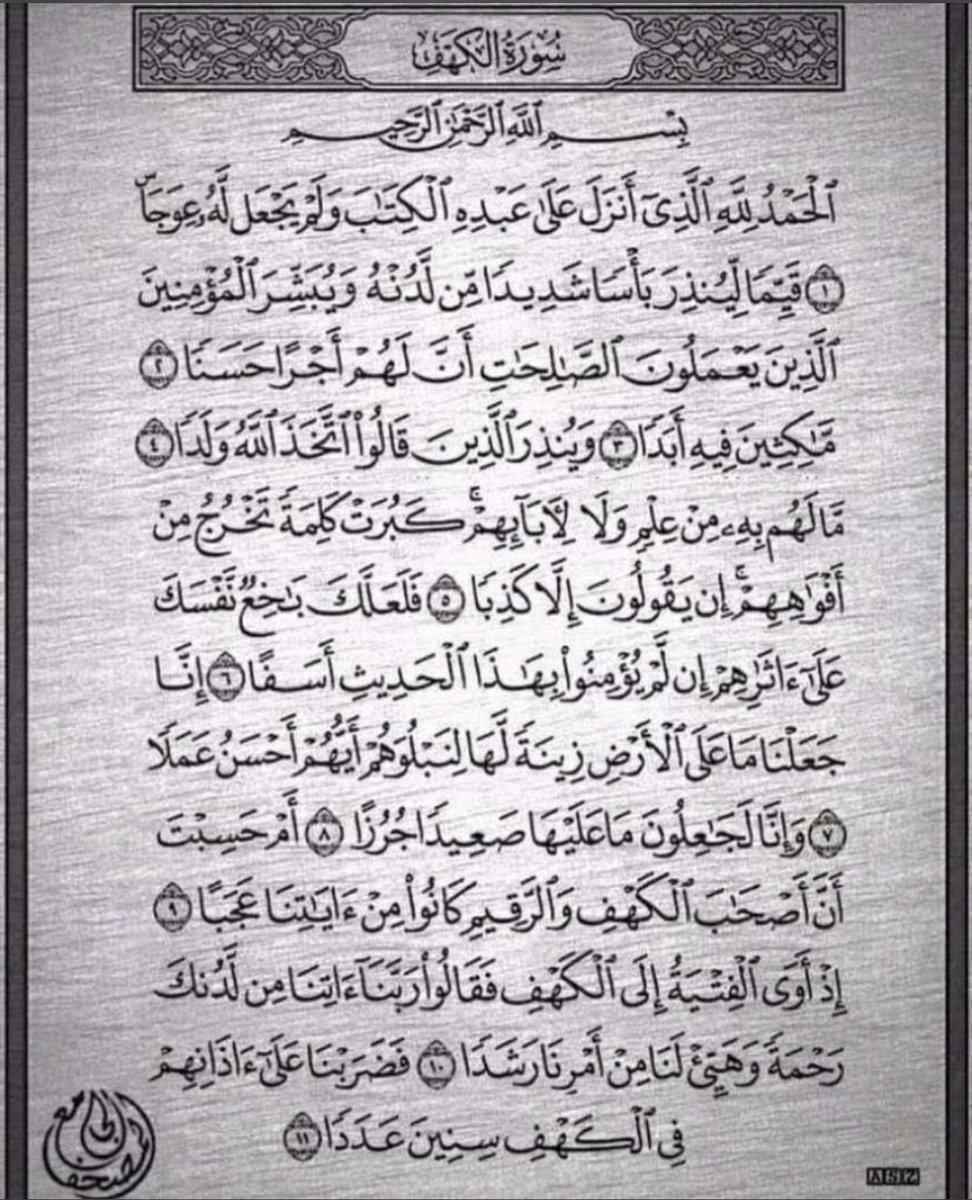 سُورَةُ الكَهْفِ
بِسْمِ ٱللَّهِ ٱلرَّحْمَٰنِ ٱلرَّحِيمِ
ٱلْحَمْدُ لِلَّهِ ٱلَّذِىٓ أَنزَلَ عَلَىٰ عَبْدِهِ ٱلْكِتَٰبَ وَلَمْ يَجْعَل لَّهُۥ عِوَجَاۜ
۝١ قَيِّمًا لِّيُنذِرَ بَأْسًا شَدِيدًا مِّن لَّدُنْهُ وَيُبَشِّرَ ٱلْمُؤْمِنِينَ
ٱلَّذِينَ يَعْمَلُونَ ٱلصَّٰلِحَٰتِ أَنَّ لَهُمْ أَجْرًا حَسَنًا ۝٢
مَّٰكِثِينَ فِيهِ أَبَدًا ۝٣ وَيُنذِرَ ٱلَّذِينَ قَالُوا۟ ٱتَّخَذَ ٱللَّهُ وَلَدًا ۝٤
مَّا لَهُم بِهِۦ مِنْ عِلْمٍ وَلَا لِأَبَآئِهِمْ ۚ كَبُرَتْ كَلِمَةً تَخْرُجُ مِنْ
أَفْوَٰهِهِمْ ۚ إِن يَقُولُونَ إِلَّا كَذِبًا ۝٥ فَلَعَلَّكَ بَٰخِعٌ نَّفْسَكَ
عَلَىٰٓ ءَاثَٰرِهِمْ إِن لَّمْ يُؤْمِنُوا۟ بِهَٰذَا ٱلْحَدِيثِ أَسَفًا ۝٦ إِنَّا
جَعَلْنَا مَا عَلَى ٱلْأَرْضِ زِينَةً لَّهَا لِنَبْلُوَهُمْ أَيُّهُمْ أَحْسَنُ عَمَلًا
۝٧ وَإِنَّا لَجَٰعِلُونَ مَا عَلَيْهَا صَعِيدًا جُرُزًا ۝٨ أَمْ حَسِبْتَ
أَنَّ أَصْحَٰبَ ٱلْكَهْفِ وَٱلرَّقِيمِ كَانُوا۟ مِنْ ءَايَٰتِنَا عَجَبًا ۝٩
إِذْ أَوَى ٱلْفِتْيَةُ إِلَى ٱلْكَهْفِ فَقَالُوا۟ رَبَّنَآ ءَاتِنَا مِن لَّدُنكَ
رَحْمَةً وَهَيِّئْ لَنَا مِنْ أَمْرِنَا رَشَدًا ۝١٠ فَضَرَبْنَا عَلَىٰٓ ءَاذَانِهِمْ
فِى ٱلْكَهْفِ سِنِينَ عَدَدًا ۝١١
ASZ